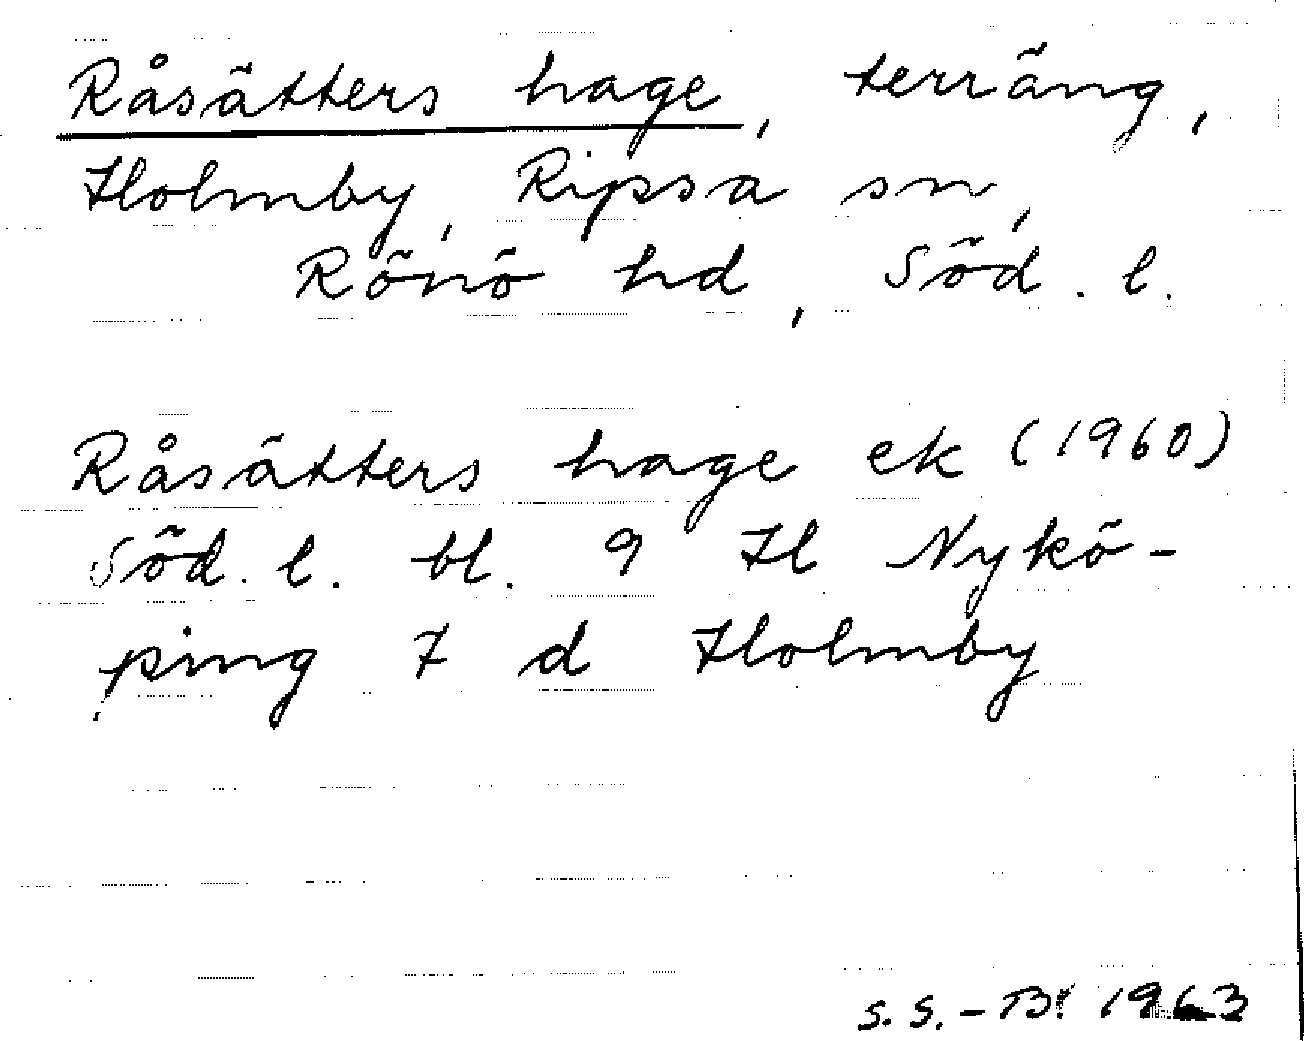 Råsätters hage, terräng,
Holmby, Ripsa sn,
Rönö hd, Söd. l.
Råsätters hage ek (1960)
Söd. l. bl. 9 H Nykö-
ping 7 d Holmby
S. S. - B: 1963